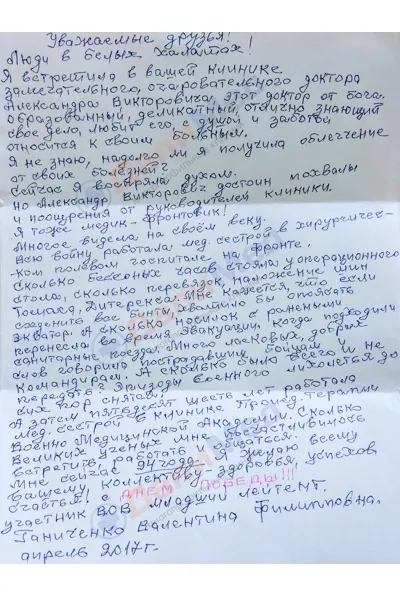 Уважаемые друзья!
Люди в белых халатах!
Я встретила в вашей клинике
замечательного, очаровательного доктора
Александра Викторовича, этот доктор от бога.
Образованный, деликатный, отлично знающий
свое дело, любит его, с душой и заботой
относится к своим больным.
Я не знаю, надолго ли я получила облегчение
от своих болезней?
Сейчас я воспряла духом.
Но Александр Викторович достоин похвалы
и поощрения от руководителей клиники.
Я тоже медик-фронтовик!
Многое видела на своём веку.
Всю войну работала мед. сестрой в хирургичес-
ком полевом госпитале на фронте.
Сколько бессонных часов стояла у операционного
стола, сколько перевязок, наложение шин
Томаса, Дитерекса. Мне кажется, что если
соединить все бинты, хватило бы опоясать
Экватор. А сколько носилок с ранеными
перенесла во время эвакуации. Когда подходили
санитарные поезда. Много ласковых, добрых
слов говорила пострадавшим бойцам и
командирам. А сколько было всего и не
передать. Эпизоды военного лихолетья до
сих пор снятся!
А затем пятьдесят шесть лет работала
мед. сестрой в клинике Пропед. терапии
Военно Медицинской Академии. Сколько
Великих ученых мне посчастливилось
встретить, работать общаться.
Мне сейчас 94 года. Я желаю всему
Вашему коллективу - здоровья, успехов
счастья! с ДНЕМ ПОБЕДЫ!!!
участник ВОВ младший лейтент.
Ганиченко Валентина Филипповна.
апрель 2017г.